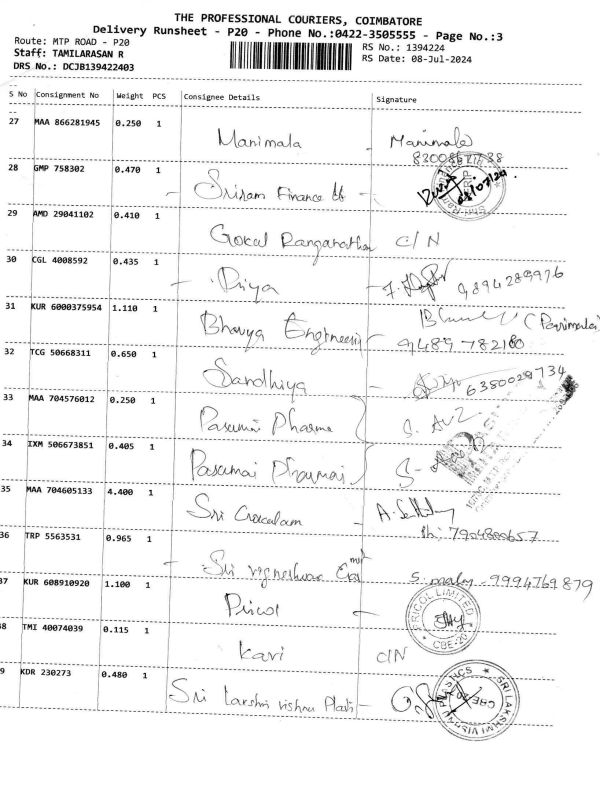 THE PROFESSIONAL COURIERS, COIMBATORE
Delivery Runsheet - P20 - Phone No.:0422-3505555 - Page No.:3
Route: MTP ROAD - P20
RS No.: 1394224
Staff: TAMILARASAN R
RS Date: 08-Jul-2024
DRS No.: DCJB139422403
S No Consignment No Weight PCS Consignee Details Signature
27 MAA 866281945 0.250 1 Manimala - Manimala
28 GMP 758302 0.470 1 - Sriram Finance - 08/07/24
29 AMD 29041102 0.410 1 Gokul Ranganathan C/N
30 CGL 4008592 0.435 1 - Priya - 9894289976
31 KUR 6000375954 1.110 1 Bhavya Engineering (Parimala)
9489782180
32 TCG 50668311 0.650 1 Sandhiya - 6380029734
33 MAA 704576012 0.250 1 Pasumai Dharma
34 IXM 506673851 0.405 1 Pasumai
35 MAA 704605133 4.400 1 Sri -
Ph:
36 TRP 5563531 0.965 1 - Sri vigneshwar 9994769879
37 KUR 608910920 1.100 1 Pricol -
PRICOL LIMITED
CBE-20
38 TMI 40074039 0.115 1 Kavi C/N
39 KDR 230273 0.480 1 Sri Lakshmi vishnu Plasti -
SRI LAKSHMI VISHNU PLASTICS
CBE-20